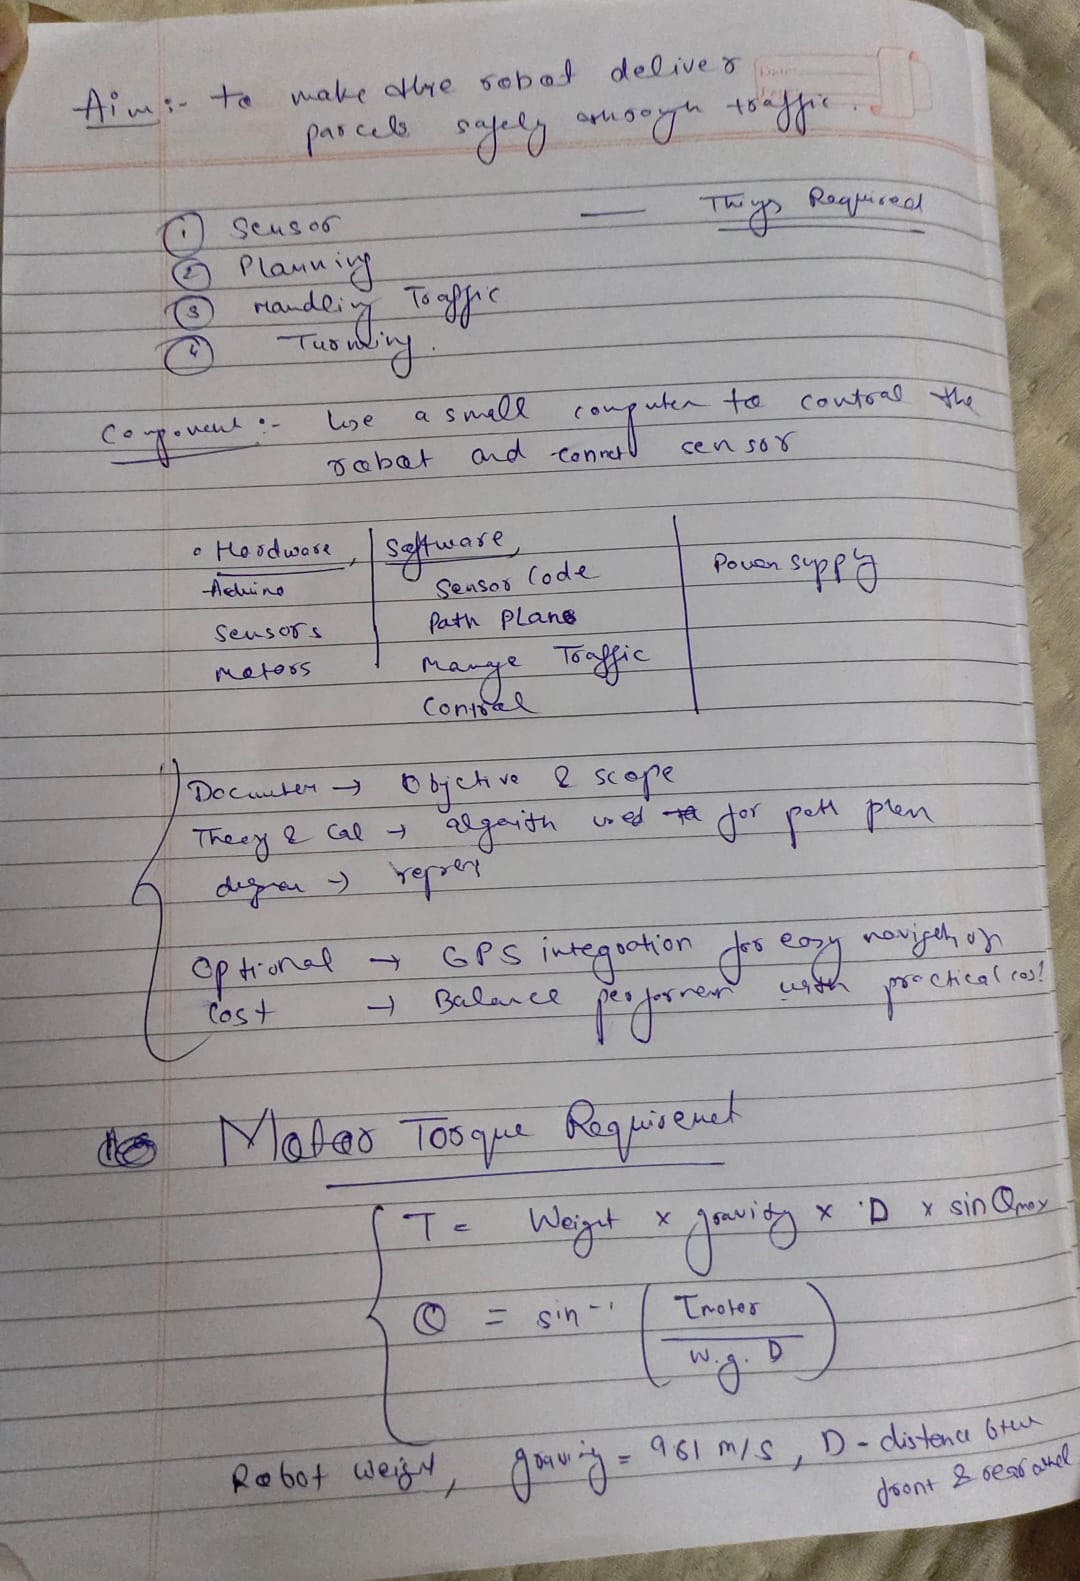 Aim :- to make the robot deliver
parcels safely through traffic.
— Things Required
① Sensor
② Planning
③ Handling Traffic
④ Turning.
Component :- Use a small computer to control the
robot and connect sensor
• Hardware, Software, Power supply
Arduino Sensor Code
Sensors Path Plans
Motors Manage Traffic
Control
→ Objctive & scope
Theory & Cal → algorith used for path plan
→
Optional → GPS integration for easy navigation
Cost → Balance with practical cost
Motor Torque Requiremet
T = Weight x gravity x D x sin Θmax
Θ = sin⁻¹ ( Tmotor / w.g. D )
Robot weight, gravity = 9.61 m/s, D - distence btw
front & rear